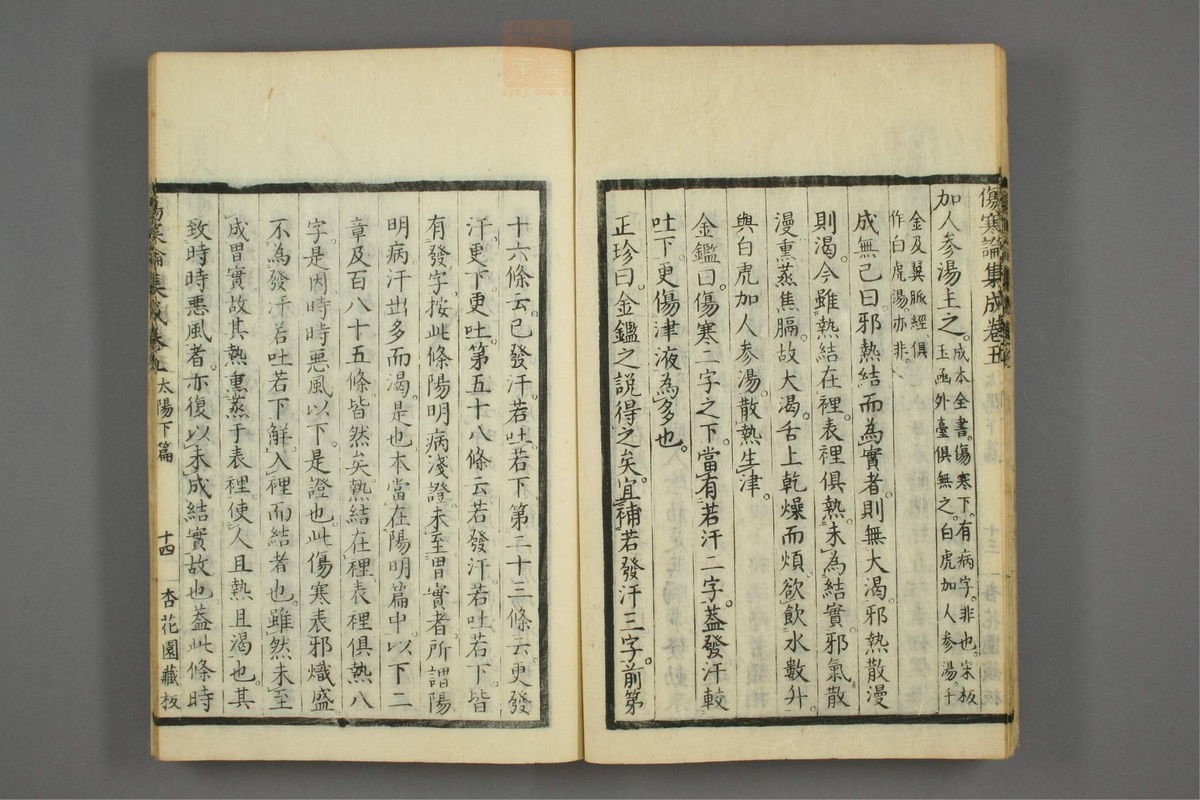 傷寒論集成卷五
加人參湯主之。成本全書。傷寒下。有病字。非也。宋板
玉函外臺俱無之。白虎加人參湯。千
金及翼脈經。俱
作白虎湯。亦非。
成無己曰。邪熱結而為實者。則無大渴。邪熱散漫
則渴。今雖熱結在裡。表裡俱熱。未為結實。邪氣散
漫熏蒸焦膈。故大渴。舌上乾燥而煩。欲飲水數升。
與白虎加人參湯。散熱生津
金鑑曰。傷寒二字之下。當有若汗二字。葢發汗較
吐下更傷津液為多也。
正珍曰。金鑑之說得之矣。宜補若發汗三字。前第
十六條云。已發汗。若吐。若下。第二十三條云。更發
汗。更下。更吐。第五十八條云。若發汗。若吐。若下。皆
有發字。按此條陽明病淺證。未至胃實者。所謂陽
明病汗出多而渴。是也。本當在陽明篇中。以下二
章及百八十五條。皆然矣。熱結在裡。表裡俱熱八
字。是因時時惡風以下。是證也。此傷寒表邪熾盛
不為發汗若吐若下解。入裡而結者也。雖然未至
成胃實。故其熱熏蒸于表裡。使人且熱且渴也。其
致時時惡風者。亦復以未成結實故也。葢此條時
傷寒論集成卷 太陽下篇 十四 杏花園藏板